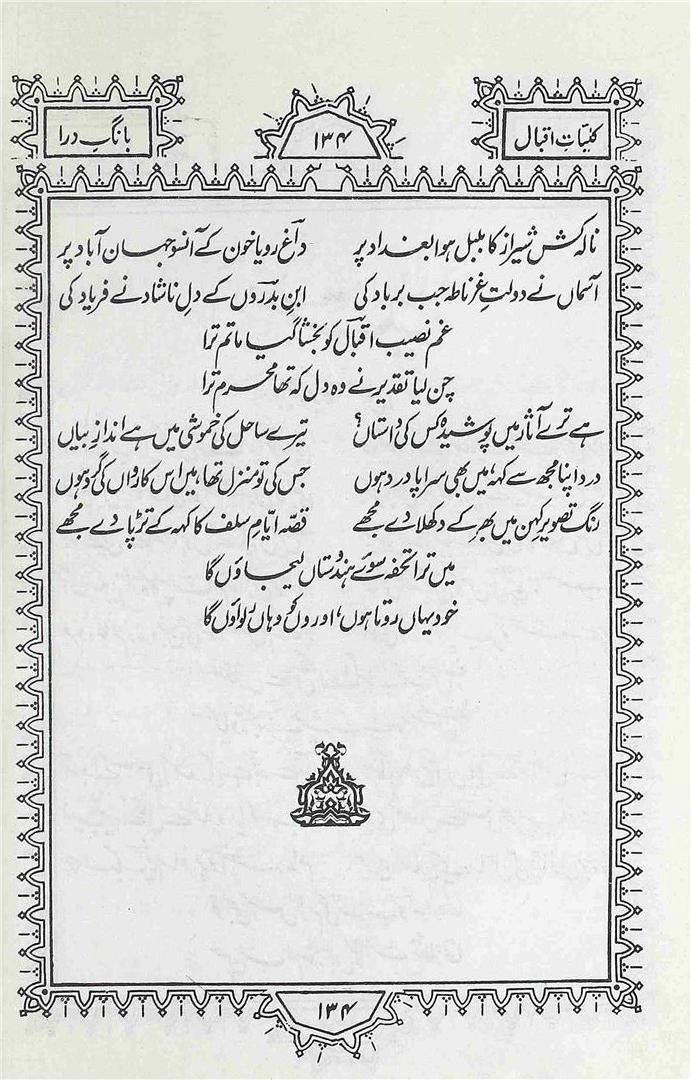 کلیاتِ اقبال
۱۳۴
بانگِ درا
نالہ کش شیراز کا بلبل ہوا بغداد پر داغؔ رویا خون کے آنسو جہان آباد پر
آسماں نے دولتِ غرناطہ جب برباد کی ابنِ بدرُوں کے دلِ ناشاد نے فریاد کی
غم نصیب اقبالؔ کو بخشا گیا ماتم ترا
چن لیا تقدیر نے وہ دل کہ تھا محرم ترا
ہے ترے آثار میں پوشیدہ کس کی داستاں؟ تیرے ساحل کی خموشی میں ہے اندازِ بیاں
درد اپنا مجھ سے کہہ، میں بھی سراپا درد ہوں جس کی تو منزل تھا، میں اس کارواں کی گرد ہوں
رنگ تصویرِ کہن میں بھر کے دکھلا دے مجھے قصّہ ایّامِ سلف کا کہہ کے تڑپا دے مجھے
میں ترا تحفہ سوئے ہندوستاں لیجاؤں گا
خود یہاں روتا ہوں، اوروں کو وہاں رُلواؤں گا
۱۳۴